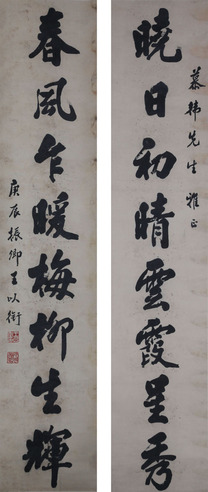 慕韩先生雅正
曉日初晴雲霞呈秀
春風乍暖梅柳生輝
庚辰振卿王以衔